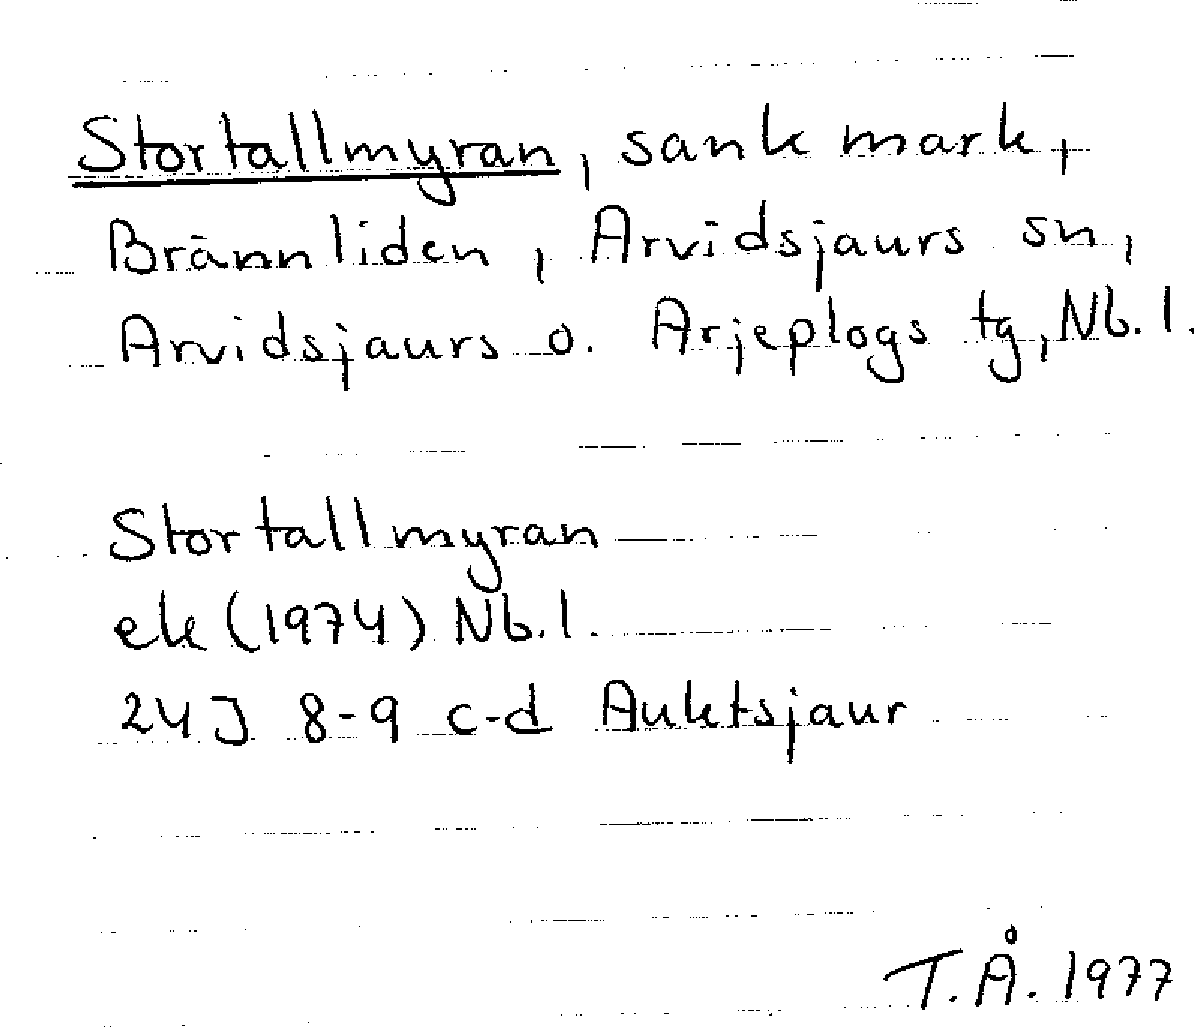 Stortallmyran, sank mark,
Brännliden, Arvidsjaurs sn,
Arvidsjaurs o. Arjeplogs tg, Nb. l.
Stortallmyran
ek (1974) Nb. l.
24J 8-9 c-d Auktsjaur
T. Å. 1977